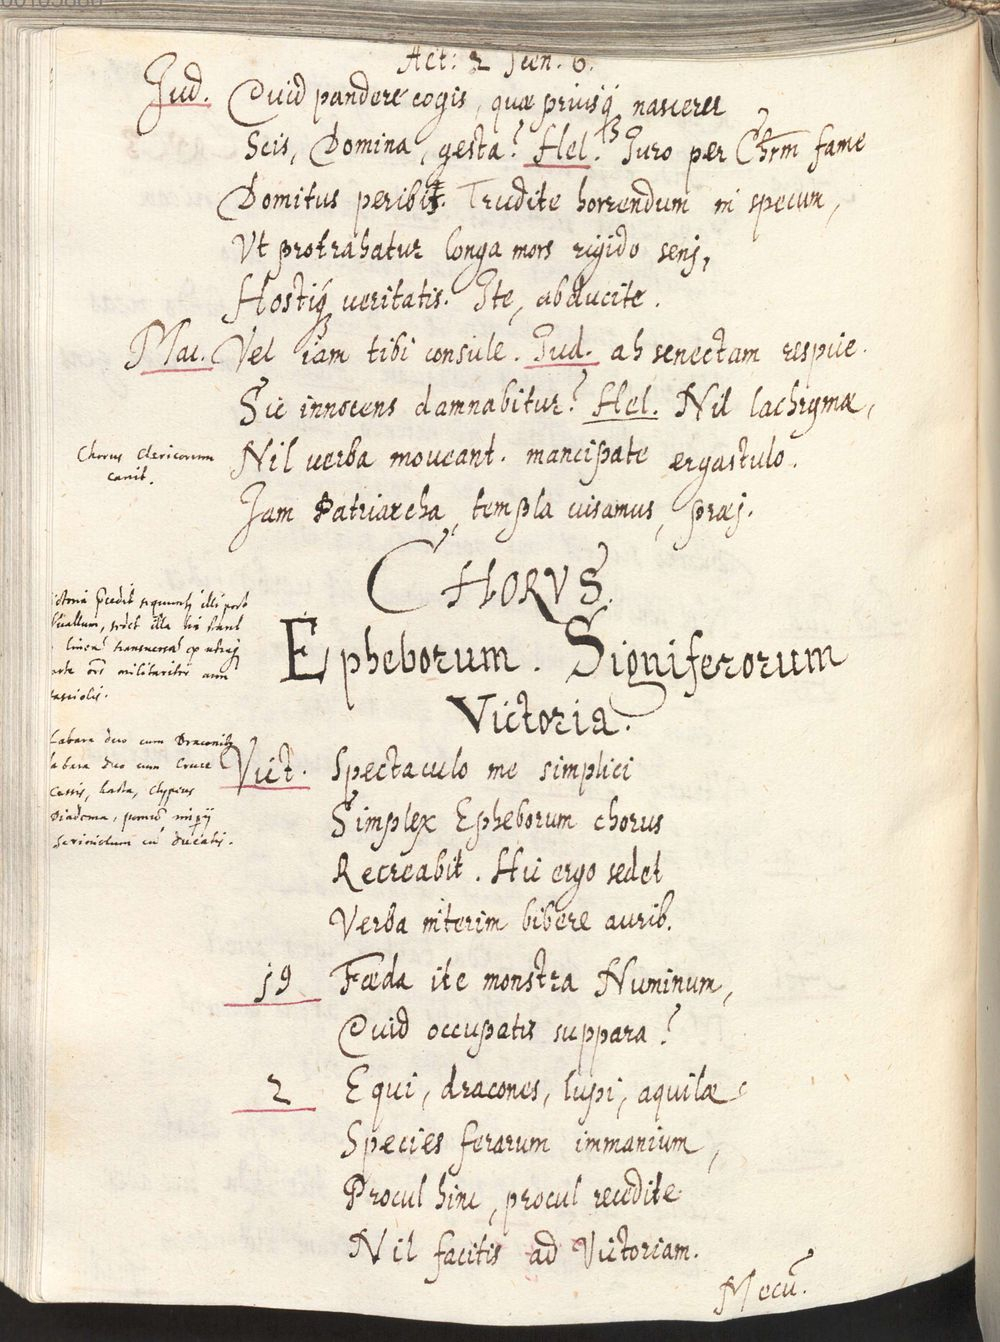 Act: 2 Scen. 6.
Jud. Quid pandere cogis, quæ priusq́ nascerer
Scis, Domina, gesta? Hel. Juro per Chrm̃ fame
Domitus peribit. Trudite horrendum in specum,
Vt protrahatur longa mors rigido senj,
Hostiq́ veritatis. Ite, abducite.
Mac. Vel iam tibi consule. Jud. ah senectam respice.
Sic innocens damnabitur? Hel. Nil lachrymæ,
Chorus Clericorum
canit.
Nil verba moveant. mancipate ergastulo.
Jam Patriarcha, templa visamus, præj.
CHORVS.
Epheborum. Signiferorum
Victoria.
illi post
uallum, illa
linea transuersa
militariter cum
fasciolis.
Labara duo cum Draconib.
labara duo cum Cruce
Cassis, hasta, Clypeus
Diadema, pomũ impij
cũ ducatis.
Vict. Spectaculo me simplici
Simplex Epheborum chorus
Recreabit. Hic ergo sedet
Verba interim bibere aurib.
19 Fæda ite monstra Numinum,
Quid occupatis suppara?
2 Equi, dracones, lupi, aquilæ
Species ferarum immanium,
Procul hinc, procul recedite
Nil facitis ad Victoriam.
Mecũ.